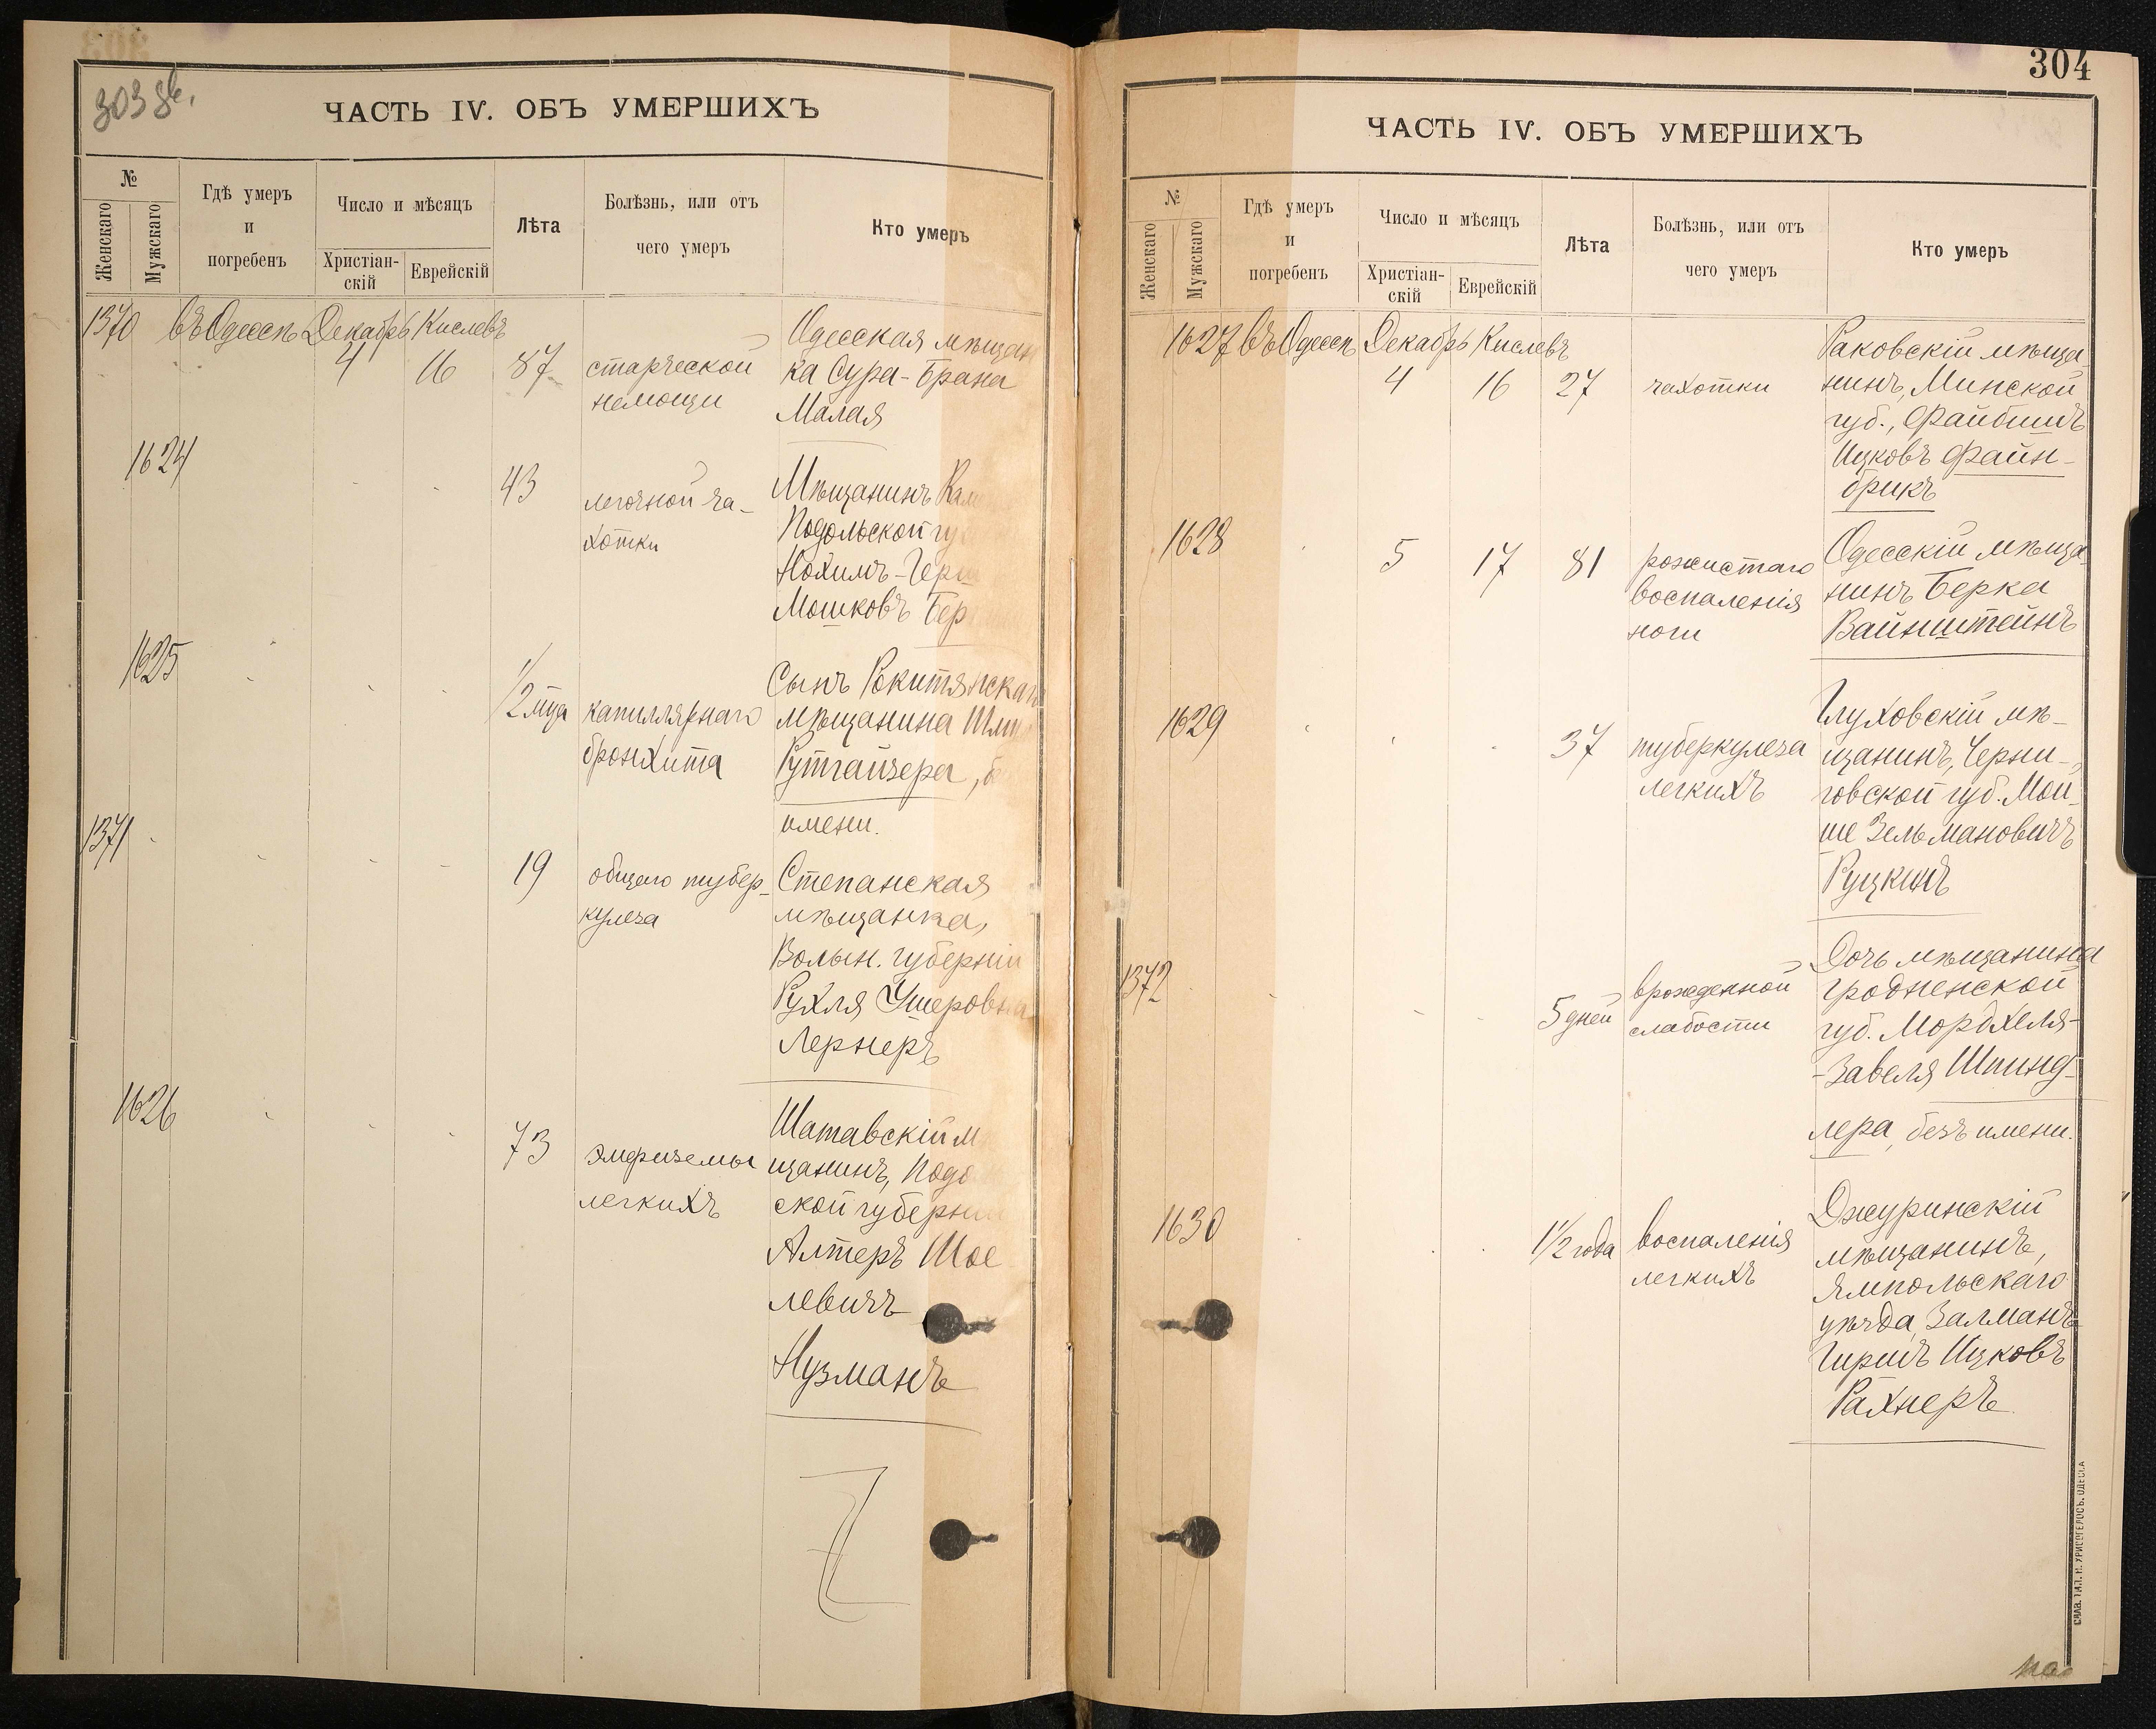 303 об.
ЧАСТЬ IV. ОБЪ УМЕРШИХЪ
№
Женскаго
Мужскаго
Гдѣ умеръ
и
погребенъ
Число и мѣсяцъ
Христіан-
скій
Еврейскій
Лѣта
Болѣзнь, или отъ
чего умеръ
Кто умеръ
1370 въ Одессѣ Декабрь Кислевъ
4 16 87
старческой
немощи
Одесская мѣщан
ка Сура-Брана
Малая
1624
43
легочной ча-
хотки
Мѣщанинъ
Подольской
Нохимъ-Герш
Мошковъ Бер
1625
1/2 мца
капиллярнаго
бронхита
Сынъ Рокитянскаго
мѣщанина
Рутгайзера,
имени.
1371
19
общаго тубер-
кулеза
Степанская
мѣщанка,
Волын. губерніи
Рухля Ушеровна
Лернеръ
1626
73
эмфиземы
легкихъ
Шатавскій м
щанинъ, Подо
ской губерніи
Алтеръ Шое
левичъ
Нузманъ
304
ЧАСТЬ IV. ОБЪ УМЕРШИХЪ
№
Женскаго
Мужскаго
Гдѣ умеръ
и
погребенъ
Число и мѣсяцъ
Христіан-
скій
Еврейскій
Лѣта
Болѣзнь, или отъ
чего умеръ
Кто умеръ
1627 въ Одессѣ Декабрь Кислевъ
4 16 27
чахотки
Раковскій мѣща
нинъ, Минской
губ., Файбишъ
Ицковъ Файн-
брикъ
1628
5 17 81
рожистаго
воспаленія
ноги
Одесскій мѣща-
нинъ Берка
Вайнштейнъ
1629
37
туберкулеза
легкихъ
Глуховскій мѣ-
щанинъ, Черни-
говской губ. Мой-
ше Зельмановичъ
Руцкинъ
1372
5 дней
врожденной
слабости
Дочь мѣщанина
Гродненской
губ. Мордхеля-
-Завеля Шпинд-
лера, безъ имени.
1630
1 1/2 года
воспаленія
легкихъ
Джуринскій
мѣщанинъ,
Ямпольскаго
уѣзда, Залманъ
Гиршъ Ицковъ
Рахнеръ
СЛАВ. ТИП. Н. ХРИСОГЕЛОСЪ. ОДЕССА